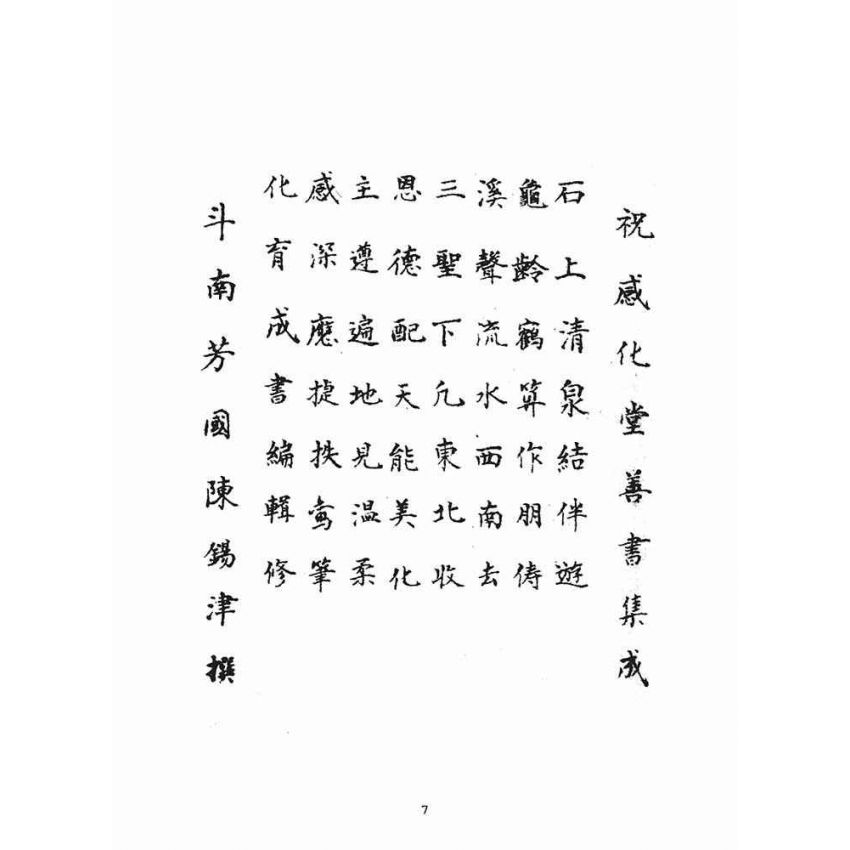 祝感化堂善書集成
石上清泉結伴遊
龜齡鶴算作朋儔
溪聲流水西南去
三聖下凡東北收
恩德配天能美化
主遵遍地見温柔
感深應捷扶鸞筆
化育成書編輯修
斗南芳國陳錫津撰
7